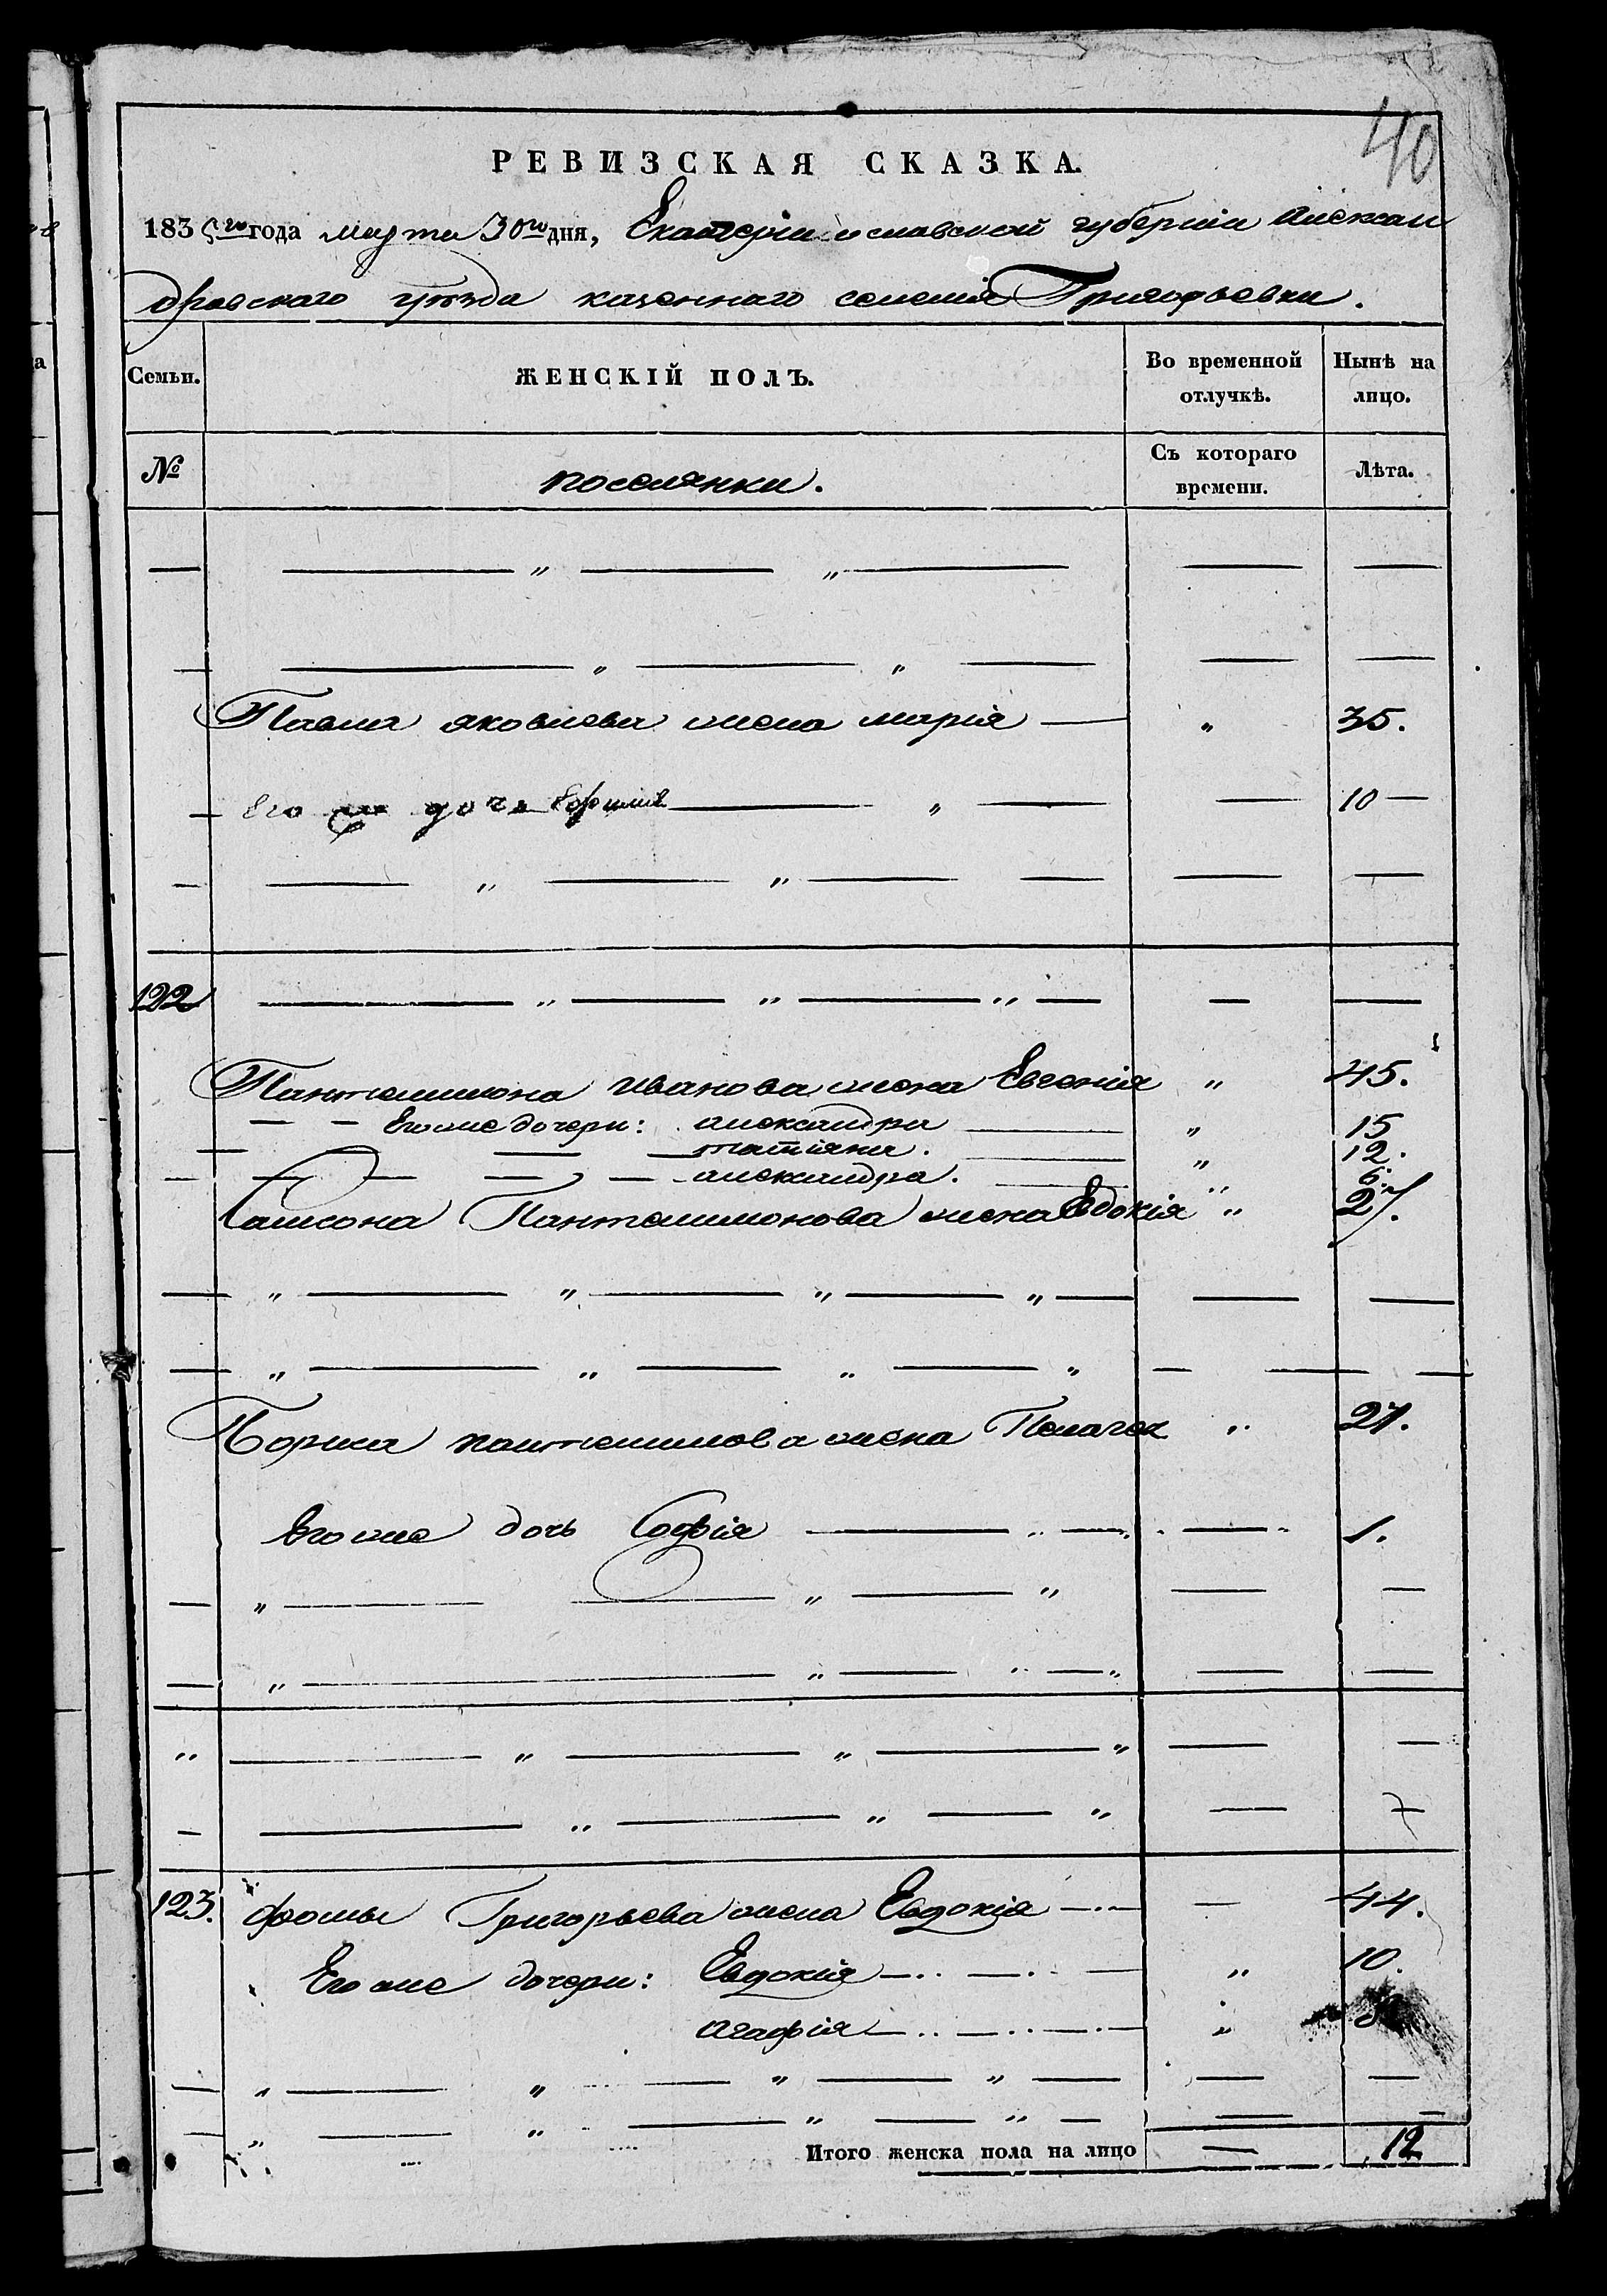 40
РЕВИЗСКАЯ СКАЗКА.
1835го года марта 30го дня, Екатеринославской губернии Алексан
дровского уезда казенного селения Григорьевки.
Семьи. ЖЕНСКІЙ ПОЛЪ. Во временной отлучкѣ. Нынѣ на лицо.
№ поселянки. Съ котораго времени. Лѣта.
Павла яковлева жена марія — " 35.
Его доч Ефимия — " — 10 —
122
Пантелимона иванова жена Евгения " 45.
Его же дочери: александра " 15
татіяна. " 12.
александра. " 6.
Самсона Пантелимонова жена Евдокія " 27.
Бориса пантелимова жена Пелагея " 27.
Его же дочь Софія — 1.
123. фомы Григорьева жена Евдокія — 44.
Его же дочери: Евдокия — " 10.
агафія — "
Итого женска пола на лицо — 12